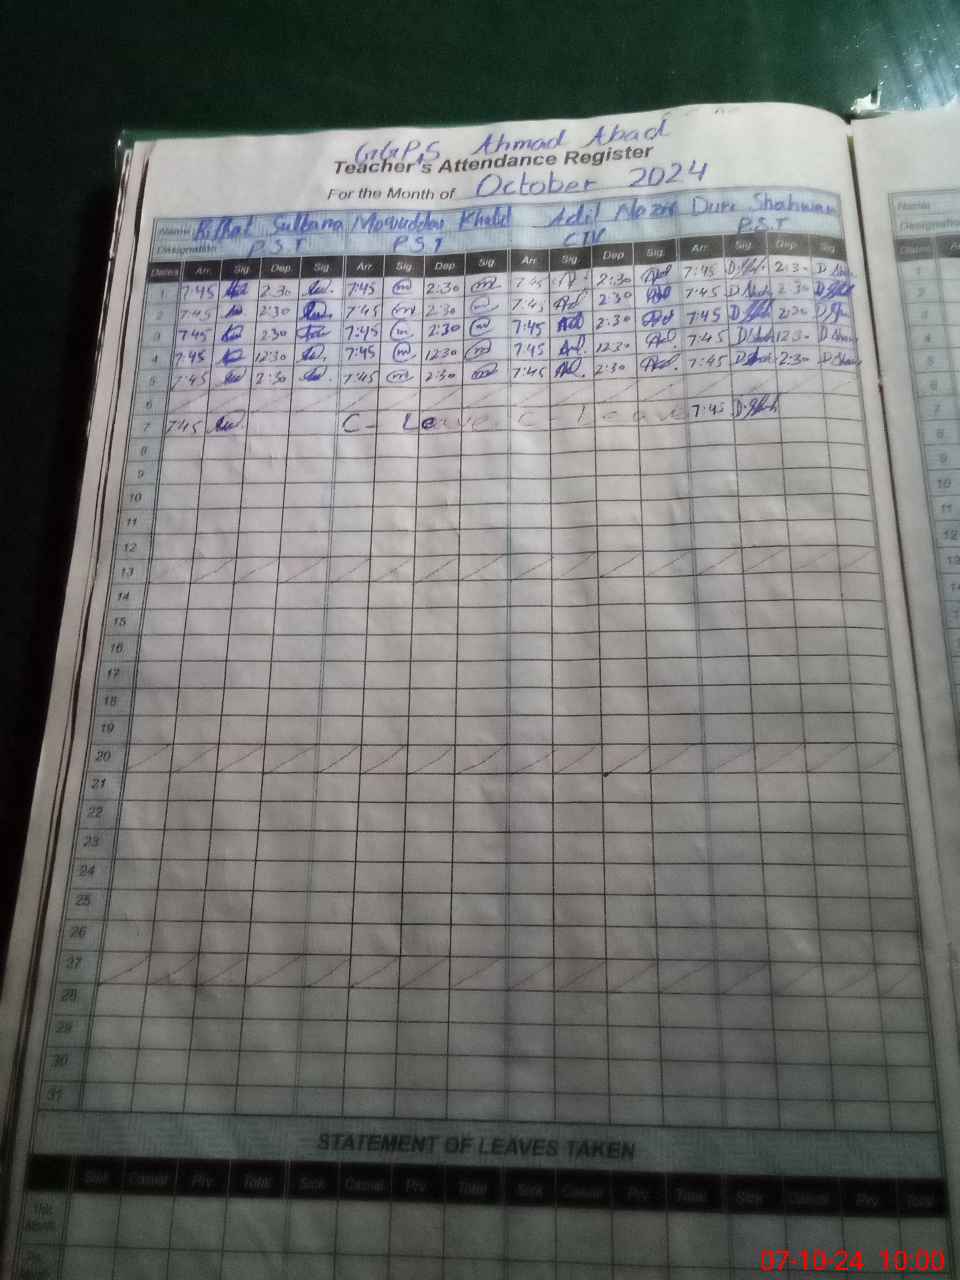 GGPS Ahmad Abad
Teacher's Attendance Register
For the Month of October 2024
Name Riffat Sultana Khalid Adil Nazir Dure Shahwar
Designation P.S.T P.S.T CTI P.S.T
Dates Arr. Sig. Dep. Sig. Arr. Sig. Dep. Sig. Arr. Sig. Dep. Sig. Arr. Sig. Dep. Sig.
1 7:45 2:30 7:45 2:30 7:45 2:30 7:45 2:30
2 7:45 2:30 7:45 2:30 7:45 2:30 7:45 2:30
3 7:45 2:30 7:45 2:30 7:45 2:30 7:45 2:30
4 7:45 12:30 7:45 12:30 7:45 12:30 7:45 12:30
5 7:45 2:30 7:45 2:30 7:45 2:30 7:45 2:30
6
7 7:45 C- Leave C- Leave 7:45
8
9
10
11
12
13
14
15
16
17
18
19
20
21
22
23
24
25
26
27
28
29
30
31
STATEMENT OF LEAVES TAKEN
Sick Casual Prv. Total Sick Casual Prv. Total Sick Casual Prv. Total Sick Casual Prv. Total
This Month
Name
Designation
Dates
07-10-24 10:00